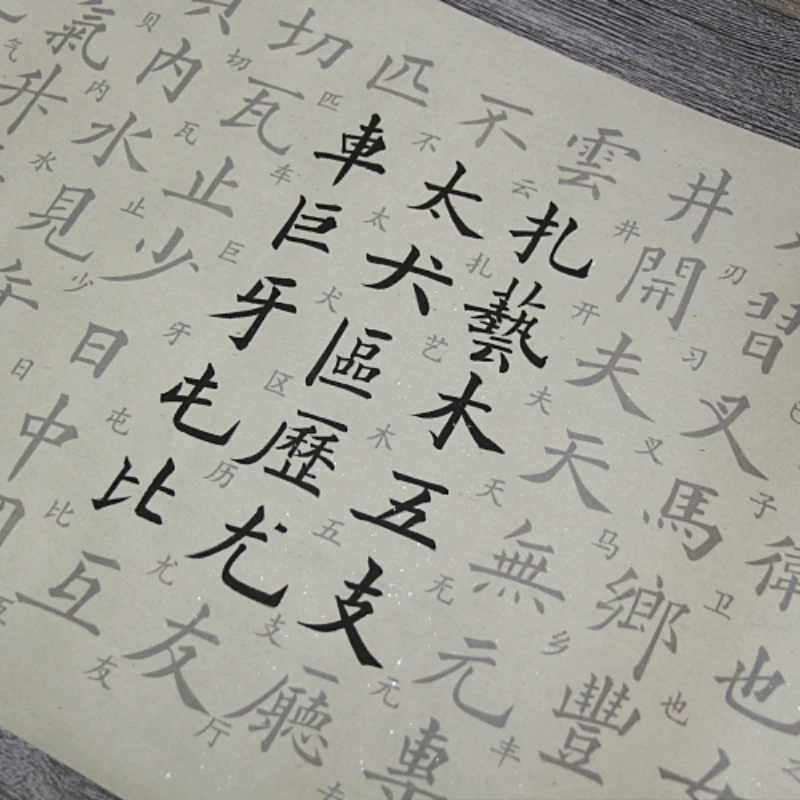 衛也女
子卫也
習叉馬鄉豐
刃习叉马乡丰
井開夫天無元專
井开夫天无元专
雲扎藝木五支廳
云扎艺木五支厅
不太犬區歷尤友
不太犬区历尤友
匹車巨牙屯比互
匹车巨牙屯比互
切瓦止少日中
切瓦止少日
貝內水見午
贝内水
氣升
气